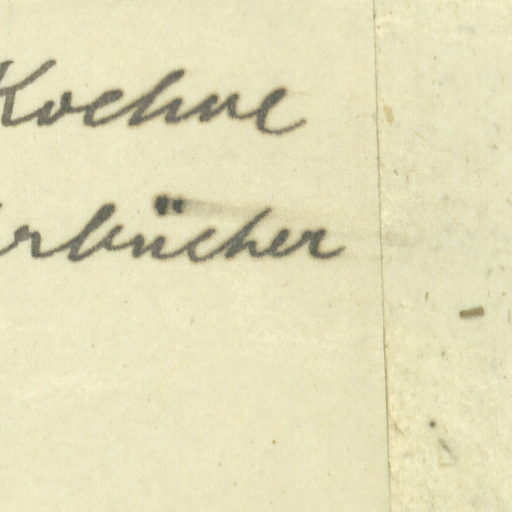 Koehne
rbücher